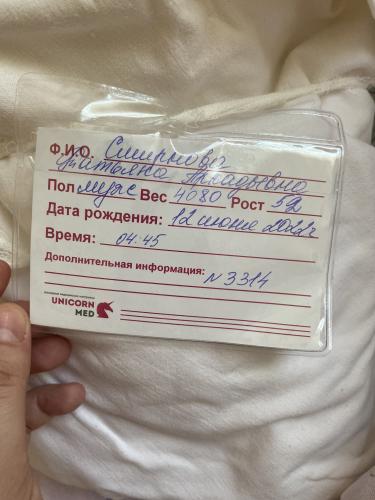 Ф.И.О. Смирнова
Татьяна Аркадьевна
Пол муж Вес 4080 Рост 52
Дата рождения: 12 июня
Время: 04.45
Дополнительная информация:
N 3314
UNICORN
MED